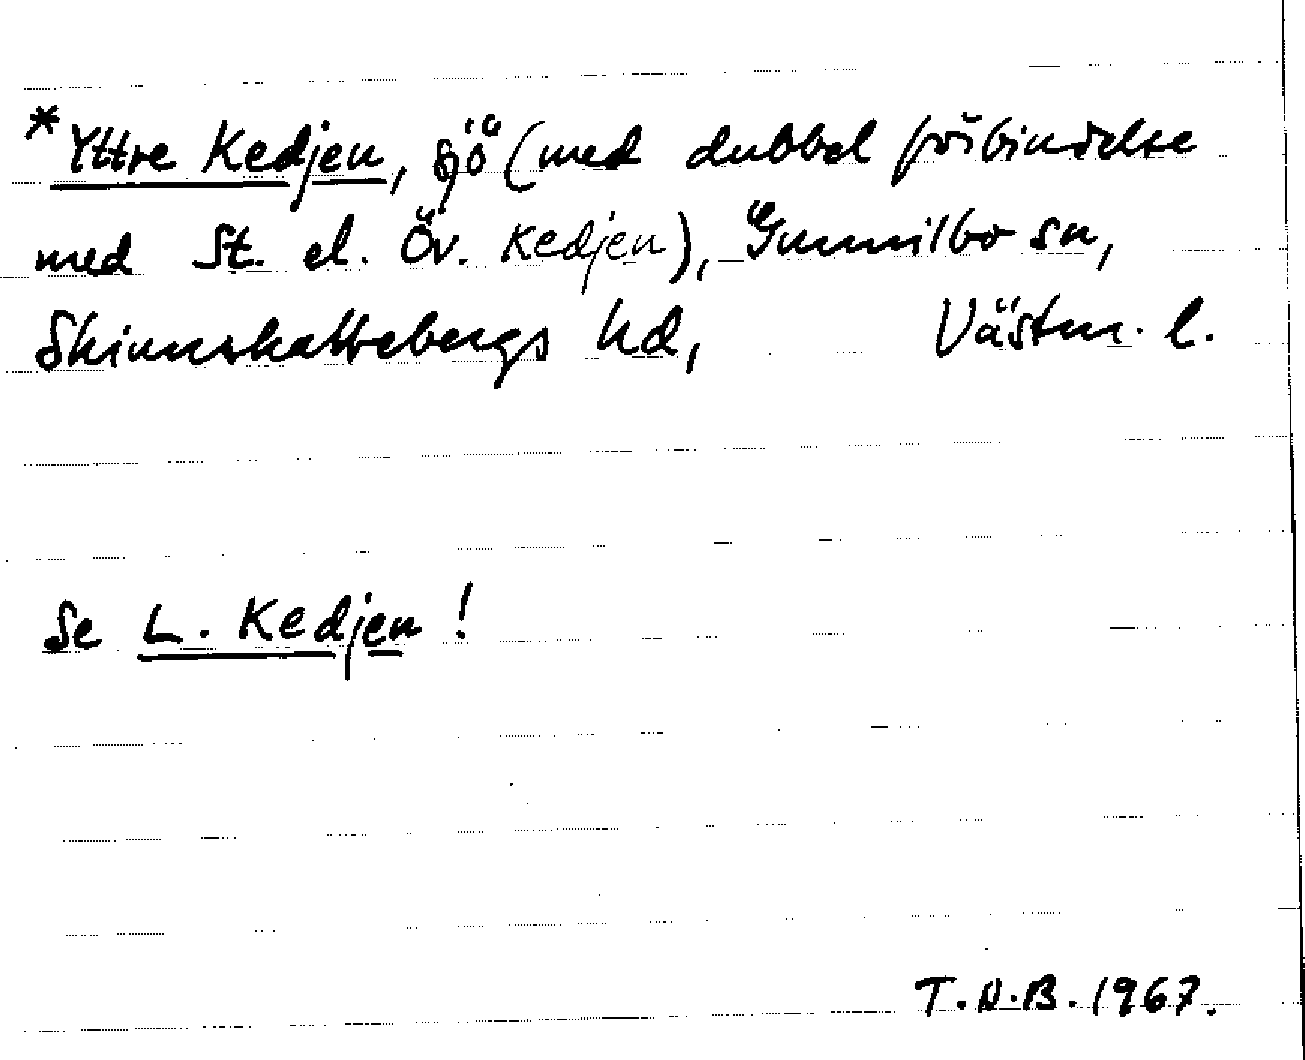 *Yttre Kedjen, sjö (med dubbel förbindelse
med St. el. Öv. Kedjen), Gunnilbo sn,
Skinnskattebergs hd, Västm. l.
Se L. Kedjen!
T.N.B. 1967.